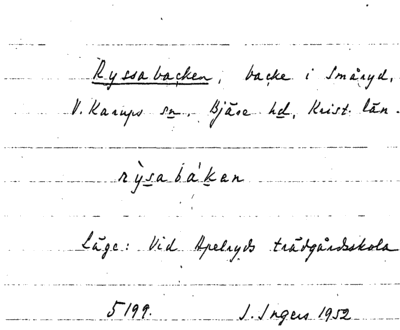 Ryssabacken, backe i Småryd,
V. Karups sn, Bjäre hd, Krist. län.
rỳsabákan
Läge: Vid Apelryds trädgårdsskola
5199. I. Ingers 1952